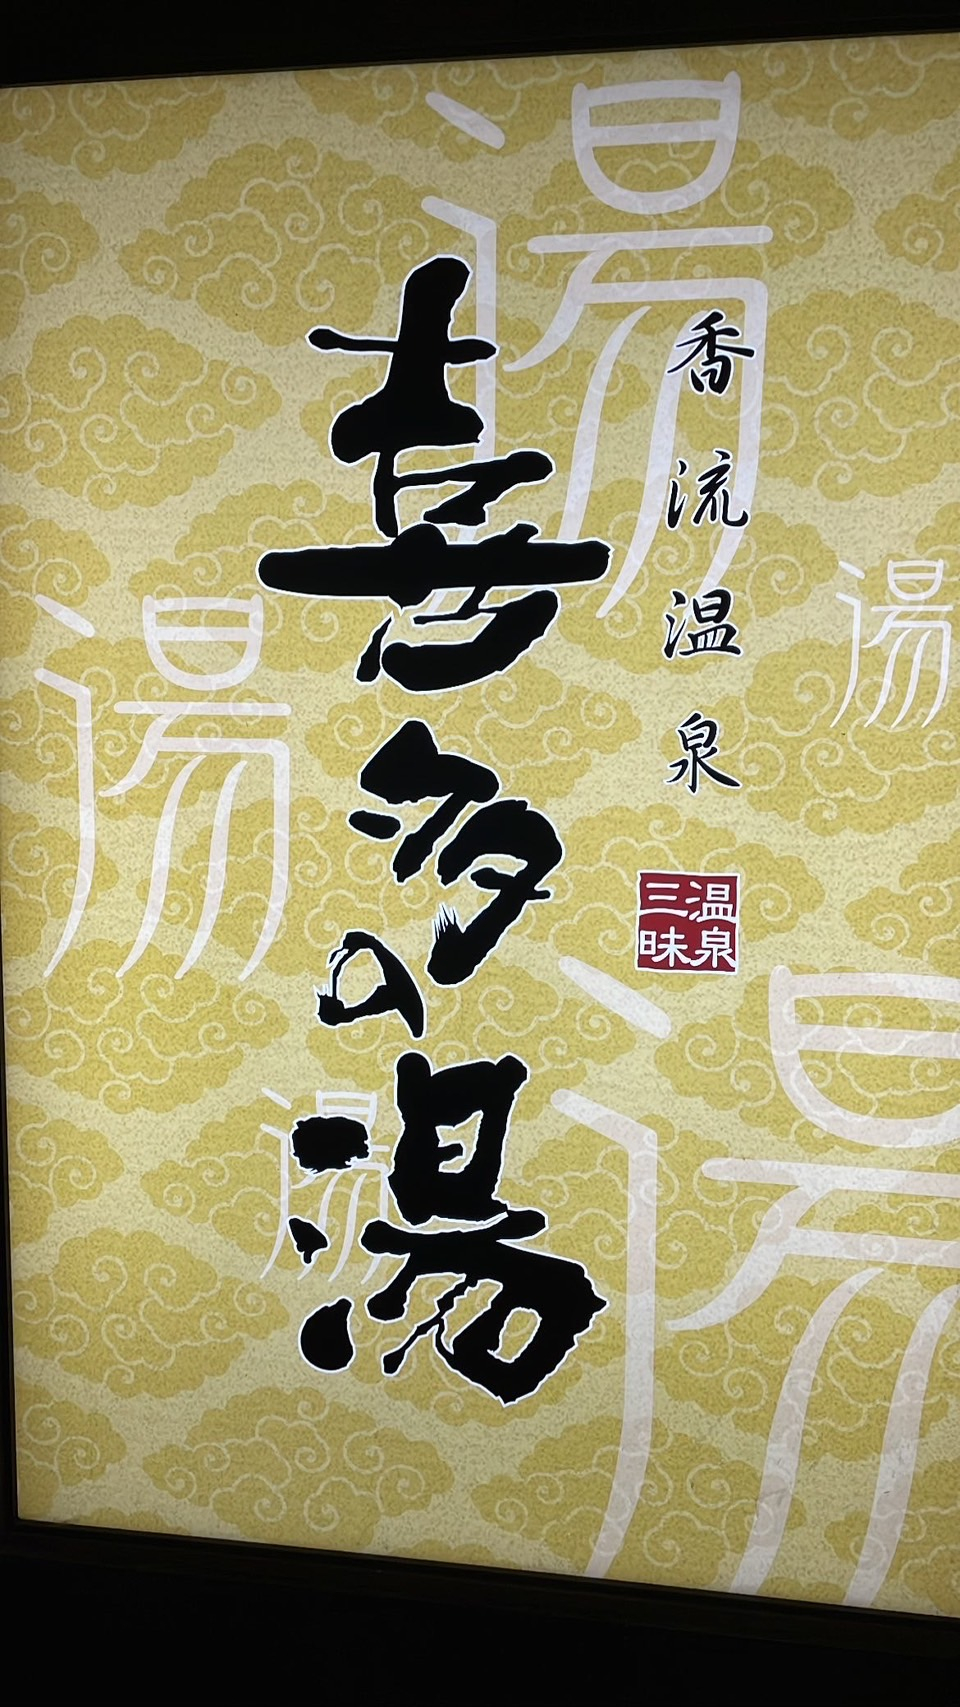 香流温泉
温泉
三昧
喜多の湯
湯
湯
湯
湯
湯